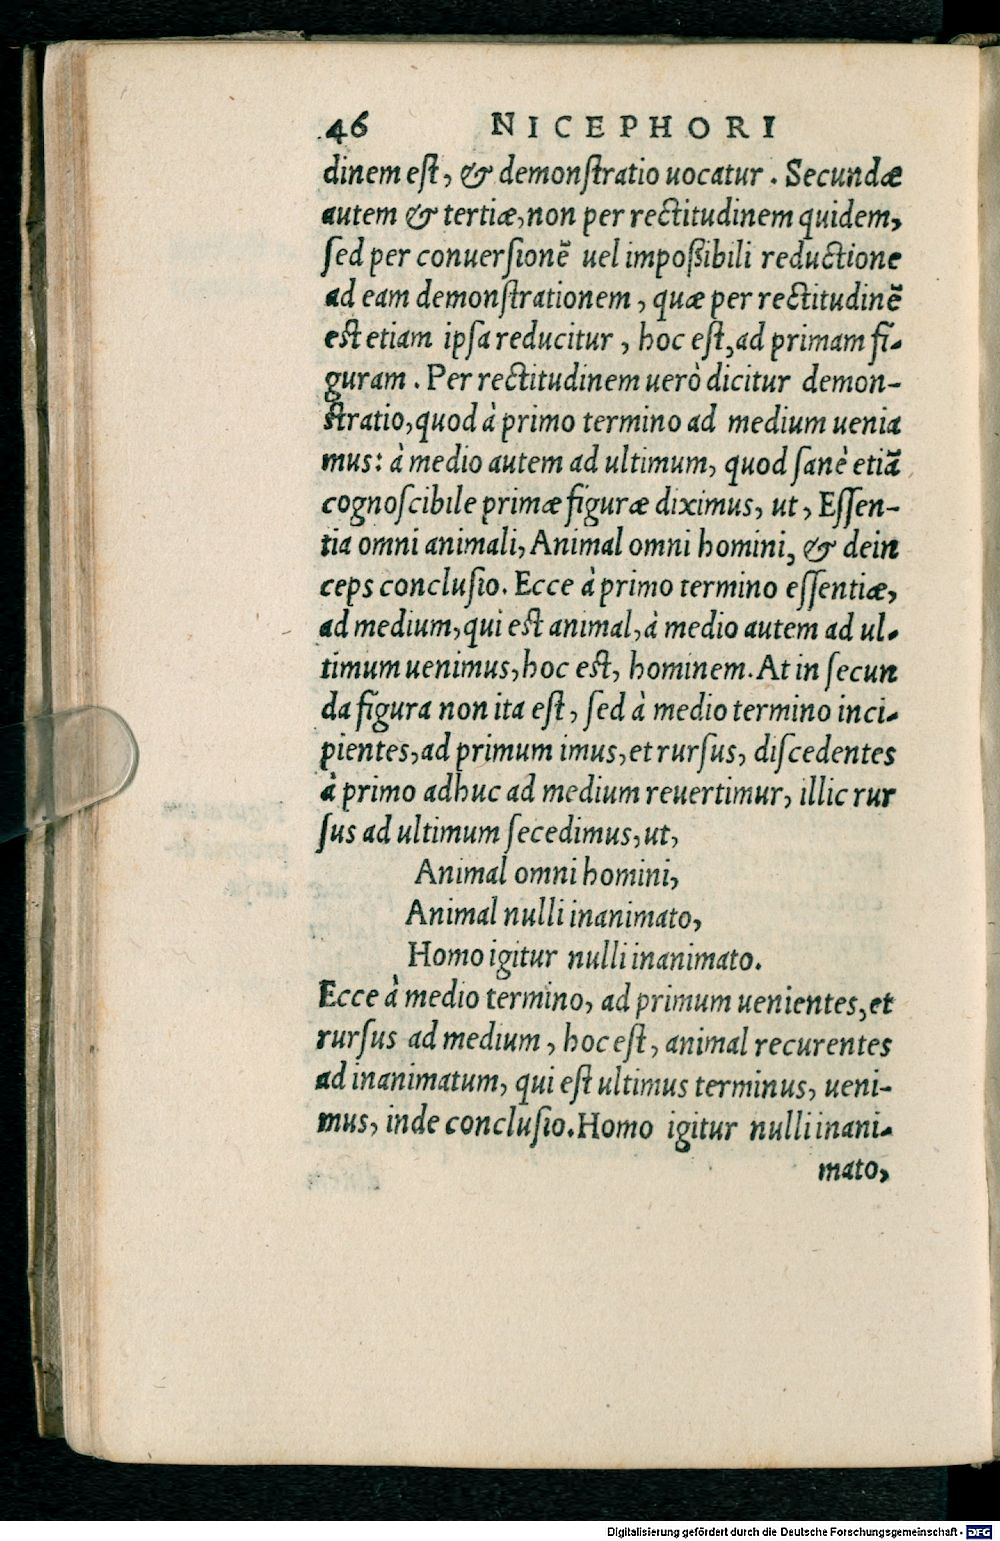 46 NICEPHORI
dinem eſt, & demonſtratio uocatur. Secundæ
autem & tertiæ, non per rectitudinem quidem,
ſed per conuerſionē uel impoßibili reductione
ad eam demonſtrationem, quæ per rectitudinē
eſt etiam ipſa reducitur, hoc eſt, ad primam fi-
guram. Per rectitudinem uerò dicitur demon-
ſtratio, quod à primo termino ad medium uenia
mus: à medio autem ad ultimum, quod ſanè etiā
cognoſcibile primæ figuræ diximus, ut, Eſſen-
tia omni animali, Animal omni homini, & dein
ceps concluſio. Ecce à primo termino eſſentiæ,
ad medium, qui eſt animal, à medio autem ad ul-
timum uenimus, hoc eſt, hominem. At in ſecun
da figura non ita eſt, ſed à medio termino inci-
pientes, ad primum imus, et rurſus, diſcedentes
à primo adhuc ad medium reuertimur, illic rur
ſus ad ultimum ſecedimus, ut,
Animal omni homini,
Animal nulli inanimato,
Homo igitur nulli inanimato.
Ecce à medio termino, ad primum uenientes, et
rurſus ad medium, hoc eſt, animal recurentes
ad inanimatum, qui eſt ultimus terminus, ueni-
mus, inde concluſio. Homo igitur nulli inani-
mato,
Digitalisierung gefördert durch die Deutsche Forschungsgemeinschaft - DFG